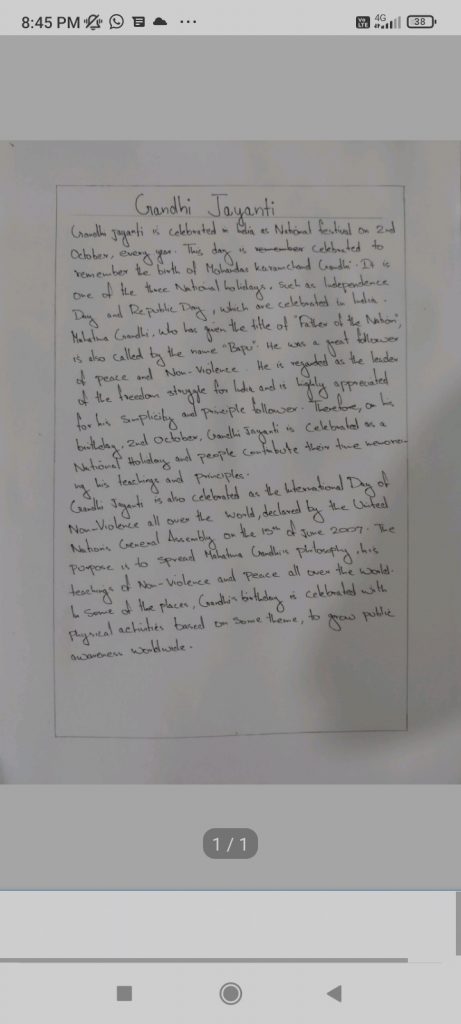 8:45 PM
4G
38
Gandhi Jayanti
Gandhi Jayanti is celebrated in India as National festival on 2nd
October, every year. This day is remember celebrated to
remember the birth of Mohandas karamchand Gandhi. It is
one of the three National holidays, such as Independence
Day and Republic Day, which are celebrated in India.
Mahatma Gandhi, who has given the title of "Father of the Nation",
is also called by the name "Bapu". He was a great follower
of peace and Non-Violence. He is regarded as the leader
of the freedom struggle for India and is highly appreciated
for his simplicity and principle follower. Therefore, on his
birthday, 2nd October, Gandhi Jayanti is celebrated as a
National Holiday and people contribute their time
ng his teachings and principles.
Gandhi Jayanti is also celebrated as the International Day of
Non-Violence all over the world, declared by the United
Nations General Assembly on the 15th of June 2007. The
purpose is to spread Mahatma Gandhi's philosophy, his
teachings of Non-Violence and peace all over the world.
In some of the places, Gandhi's birthday is celebrated with
physical activities based on some theme, to grow public
awareness worldwide.
1 / 1